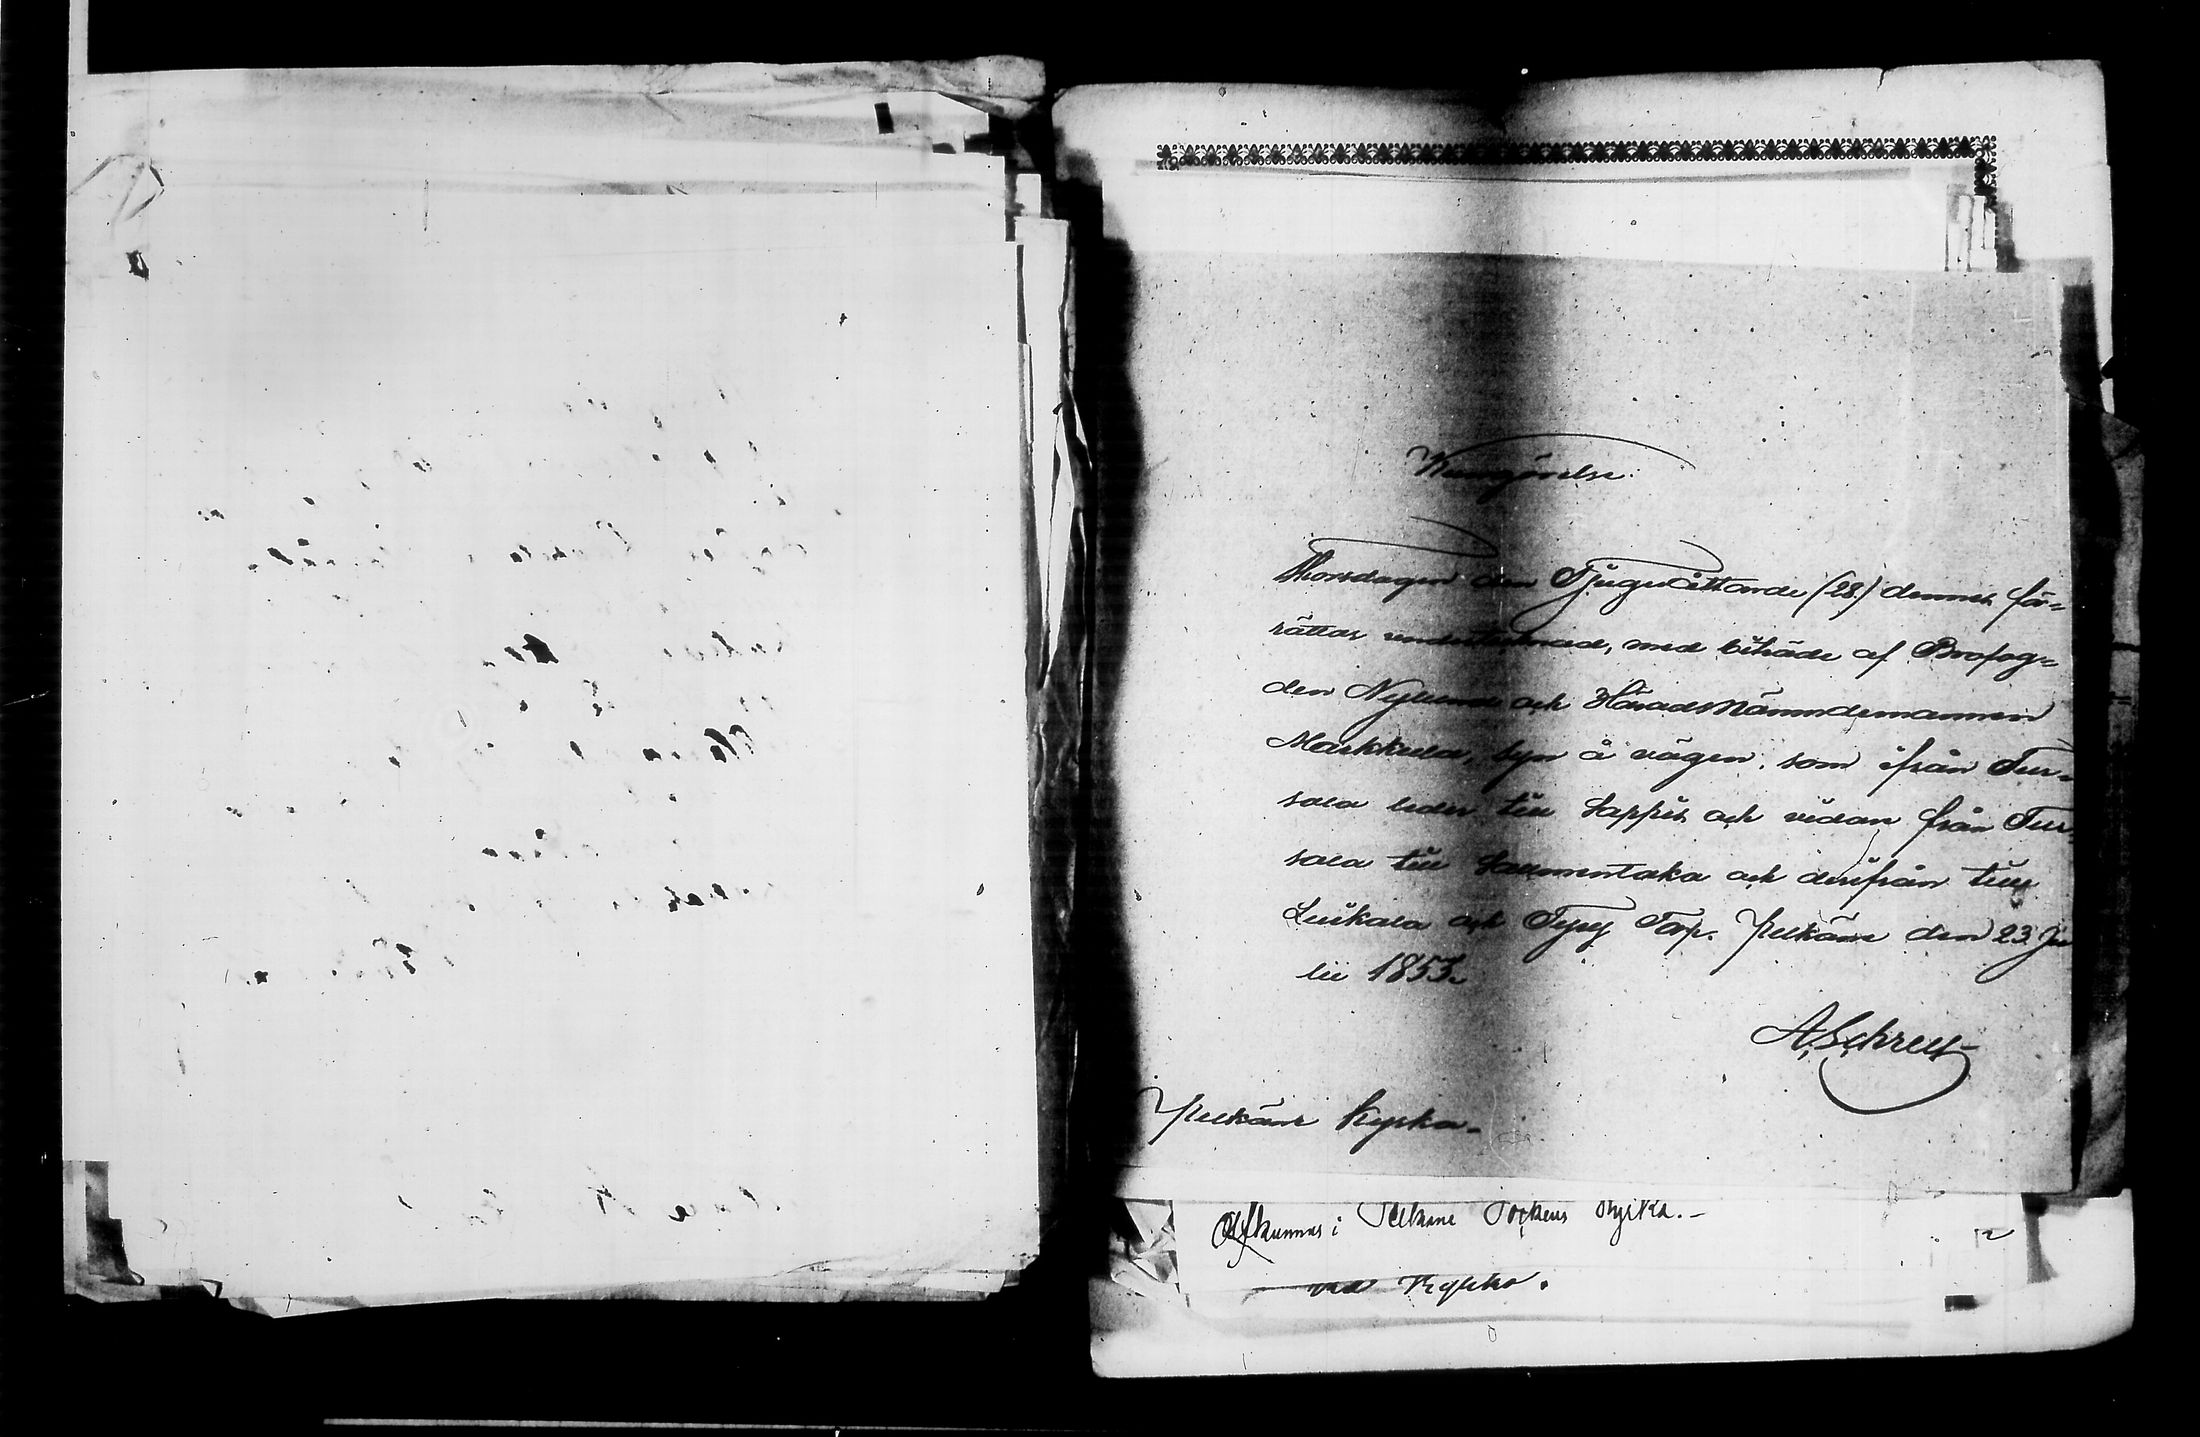 Kungörelse.
Thorsdagen den Tjugondeåttonde (28.) dennes för-
rättar undertecknad, med biträde af Brofog-
den Nylund och Häradsnämndemannen
Markkula, syn å vägen, som ifrån Tur-
sala leder till Sappis och vidare från Tur
sala till Salmentaka och derifrån till
Luikala och Torp. Pelkäne den 23 Ju
lii 1853.
A. Schreck
Pelkäne Kyrka.
Afkunnas i Pelkäne Sockens Kyrka.-
Kyrka.